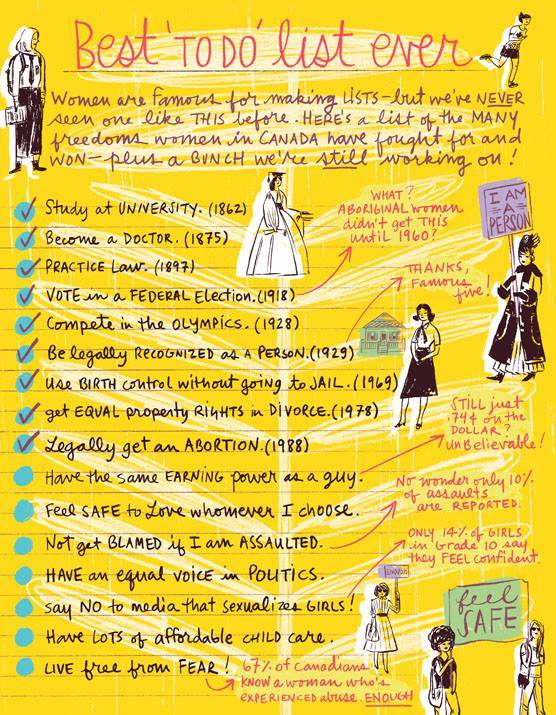 Best 'TO DO' list ever
Women are famous for making LISTS-but we've NEVER
seen one like THIS before. HERE'S a list of the MANY
freedoms women in CANADA have fought for and
WON-plus a BUNCH we're still working on!
Study at UNIVERSITY. (1862)
Become a DOCTOR. (1875)
PRACTICE Law. (1897)
VOTE in a FEDERAL Election. (1918)
WHAT?
ABORIGINAL women
didn't get THIS
until 1960?
I AM
A
PERSON
Compete in the OLYMPICS. (1928)
Be legally RECOGNIZED as a PERSON. (1929)
THANKS,
Famous
five!
Use BIRTH control without going to JAIL. (1969)
get EQUAL property RIGHTS in DIVORCE. (1978)
Legally get an ABORTION. (1988)
Have the same EARNING power as a guy.
STILL just
.74¢ on the
DOLLAR?
unBelievable!
Feel SAFE to Love whomever I choose.
Not get BLAMED if I am ASSAULTED.
No wonder only 10%
of assaults
are REPORTED.
HAVE an equal voice in POLITICS.
say NO to media that sexualizes GIRLS!
ONLY 14% of GIRLS
in Grade 10 say
they FEEL confident.
Have LOTS of affordable CHILD care.
LIVE free from FEAR!
67% of canadians
KNOW a woman who's
EXPERIENCED abuse. ENOUGH
feel
SAFE